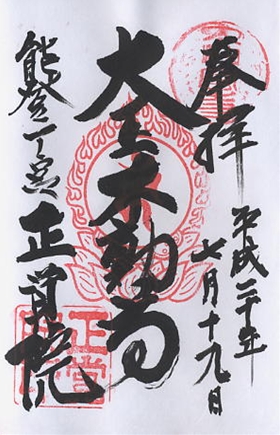 奉拝
平成二十年
七月十九日
大聖不動尊
能登一ノ宮
正覚院